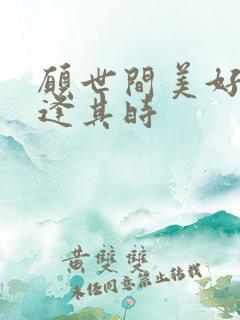 願世間美好
逢其時
黃雙雙
未經同意禁止轉載